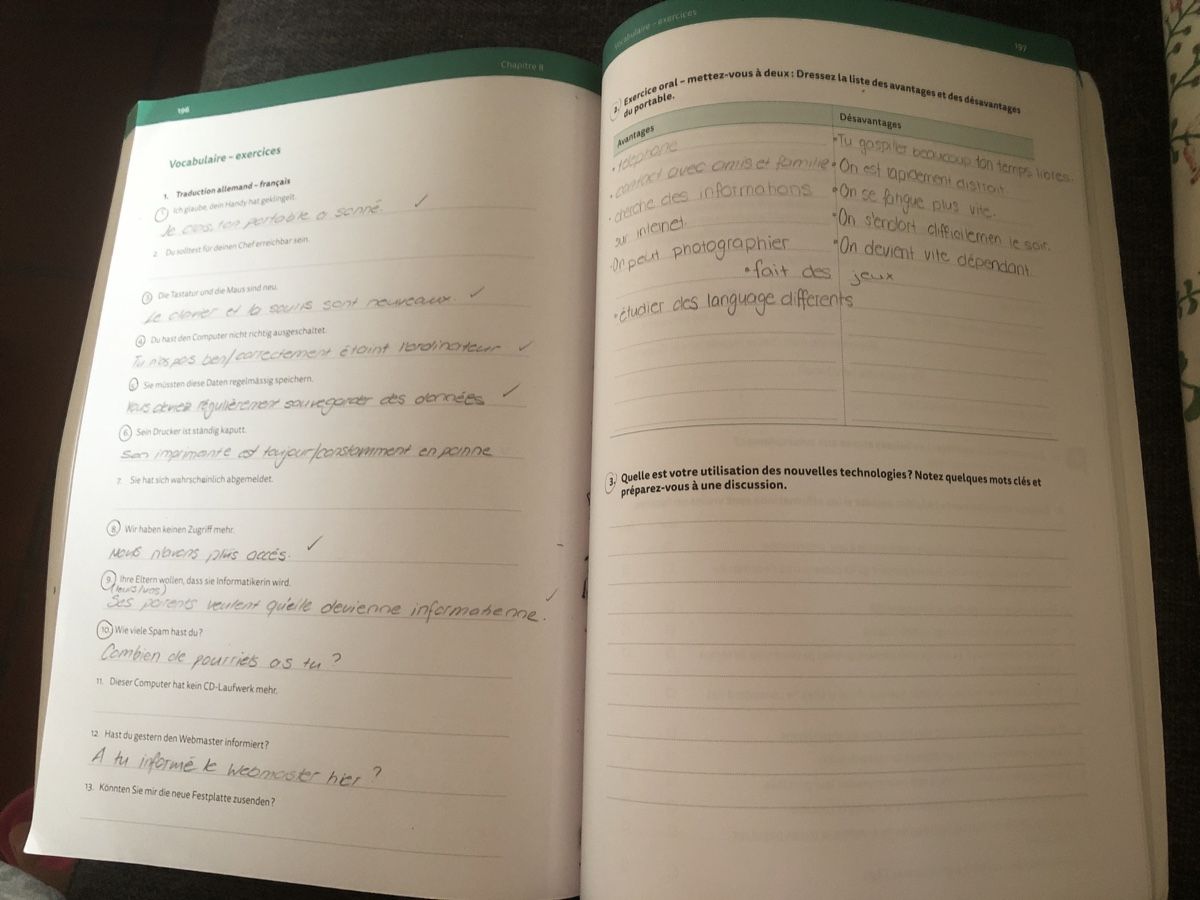 196
Chapitre 8
Vocabulaire – exercices
1. Traduction allemand – français
1. Ich glaube, dein Handy hat geklingelt.
Je crois, ton portable a sonné.
2. Du solltest für deinen Chef erreichbar sein.
3. Die Tastatur und die Maus sind neu.
Le clavier et la souris sont nouveaux.
4. Du hast den Computer nicht richtig ausgeschaltet.
Tu n'as pas bien/correctement éteint l'ordinateur
5. Sie müssten diese Daten regelmässig speichern.
Vous devriez régulièrement sauvegarder des données
6. Sein Drucker ist ständig kaputt.
Son imprimante est toujour/constamment en panne
7. Sie hat sich wahrscheinlich abgemeldet.
8. Wir haben keinen Zugriff mehr.
Nous n'avons plus accés.
9. Ihre Eltern wollen, dass sie Informatikerin wird.
(leurs/vos)
Ses parents veulent qu'elle devienne informatienne.
10. Wie viele Spam hast du?
Combien de pourriels as tu?
11. Dieser Computer hat kein CD-Laufwerk mehr.
12. Hast du gestern den Webmaster informiert?
A tu informé le webmaster hier?
13. Könnten Sie mir die neue Festplatte zusenden?
Vocabulaire – exercices
197
2. Exercice oral – mettez-vous à deux : Dressez la liste des avantages et des désavantages
du portable.
Avantages
Désavantages
• téléphone
• contact avec amis et familie
• cherche des informations
sur internet
• On peut photographier
• fait des jeux
• étudier des language différents
• Tu gaspiller beaucoup ton temps libres.
• On est rapidement distrait.
• On se fatigue plus vite.
• On s'endort difficilemen le soir.
• On devient vite dépendant.
3. Quelle est votre utilisation des nouvelles technologies? Notez quelques mots clés et
préparez-vous à une discussion.